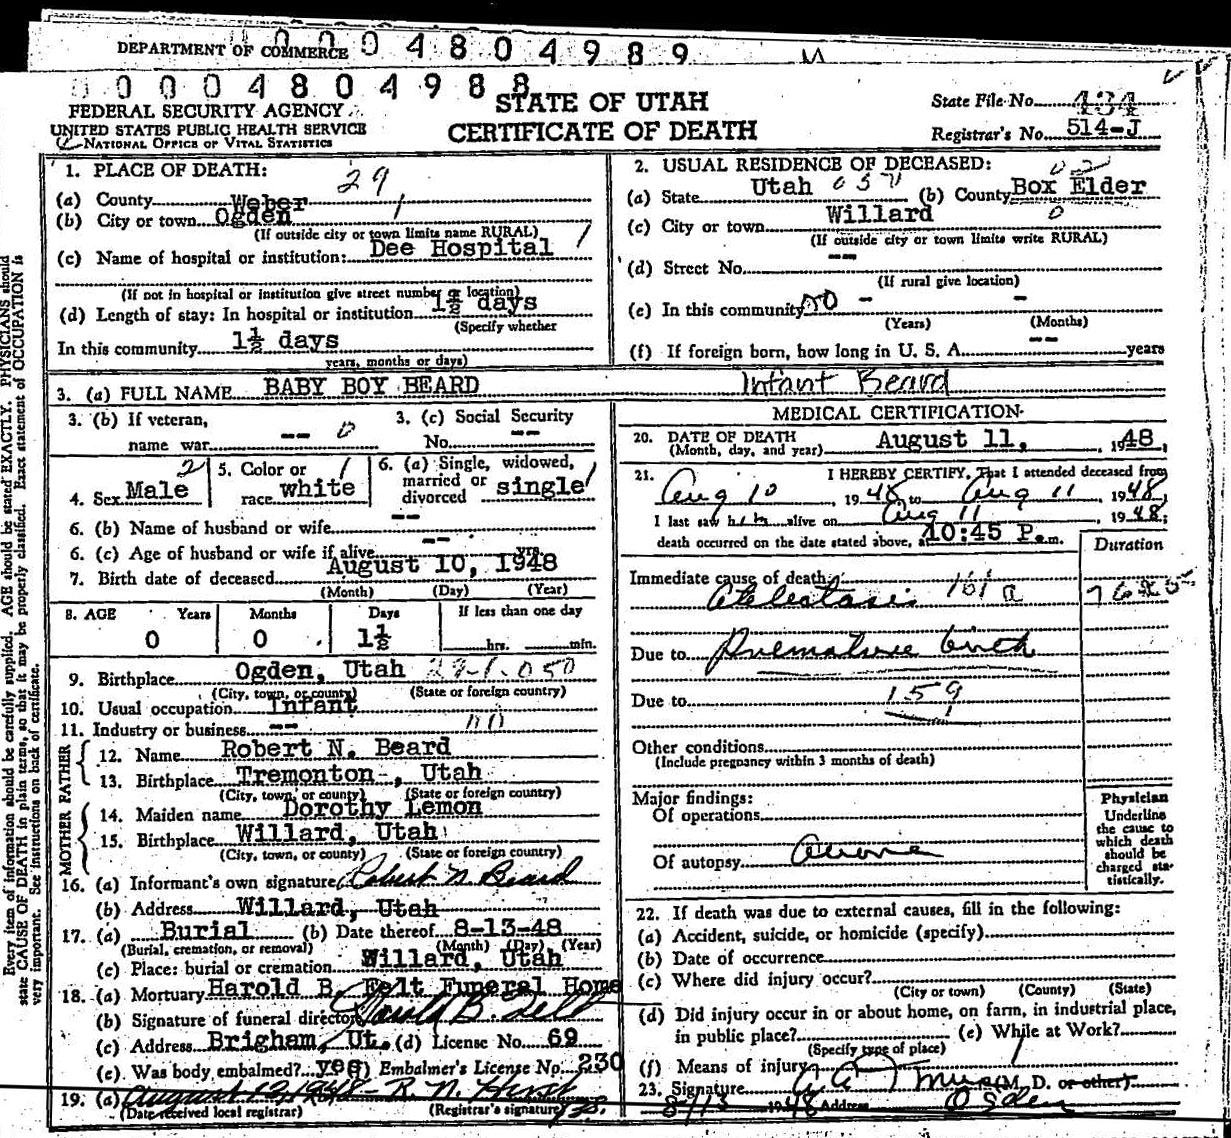 DEPARTMENT OF COMMERCE 0 0 0 0 4 8 0 4 9 8 9
0 0 0 0 4 8 0 4 9 8 8
FEDERAL SECURITY AGENCY
UNITED STATES PUBLIC HEALTH SERVICE
NATIONAL OFFICE OF VITAL STATISTICS
STATE OF UTAH
CERTIFICATE OF DEATH
State File No. 434
Registrar's No. 514-J
1. PLACE OF DEATH: 29
(a) County Weber
(b) City or town Ogden 1
(If outside city or town limits name RURAL)
(c) Name of hospital or institution: Dee Hospital 1
(If not in hospital or institution give street number or location)
(d) Length of stay: In hospital or institution 1½ days
(Specify whether
In this community 1½ days
years, months or days)
2. USUAL RESIDENCE OF DECEASED: 02
(a) State Utah (b) County Box Elder
(c) City or town Willard 0
(If outside city or town limits write RURAL)
(d) Street No. --
(If rural give location)
(e) In this community no - -
(Years) (Months)
(f) If foreign born, how long in U. S. A. -- years
3. (a) FULL NAME BABY BOY BEARD Infant Beard
3. (b) If veteran,
name war -- 0
3. (c) Social Security
No. --
4. Sex Male 2
5. Color or
race white 1
6. (a) Single, widowed,
married or
divorced single 1
6. (b) Name of husband or wife --
6. (c) Age of husband or wife if alive -- yrs.
7. Birth date of deceased August 10, 1948
(Month) (Day) (Year)
8. AGE Years Months Days If less than one day
0 0 1½ hrs. min.
9. Birthplace Ogden, Utah
(City, town, or county) (State or foreign country)
10. Usual occupation Infant
11. Industry or business --
FATHER
12. Name Robert N. Beard
13. Birthplace Tremonton-, Utah
(City, town, or county) (State or foreign country)
MOTHER
14. Maiden name Dorothy Lemon
15. Birthplace Willard, Utah
(City, town, or county) (State or foreign country)
16. (a) Informant's own signature Robert N. Beard
(b) Address Willard, Utah
17. (a) Burial (b) Date thereof 8-13-48
(Burial, cremation, or removal) (Month) (Day) (Year)
(c) Place: burial or cremation Willard, Utah
18. (a) Mortuary Harold B. Felt Funeral Home
(b) Signature of funeral director Harold B. Felt
(c) Address Brigham, Ut. (d) License No. 69
(e) Was body embalmed? yes (f) Embalmer's License No. 230
19. (a) August 12, 1948 R. N. Hirst
(Date received local registrar) (Registrar's signature)
MEDICAL CERTIFICATION
20. DATE OF DEATH August 11, 1948,
(Month, day, and year)
21. I HEREBY CERTIFY, That I attended deceased from
Aug 10 1948, to Aug 11 1948
I last saw him alive on Aug 11, 1948;
death occurred on the date stated above, at 10:45 P.m.
Duration
Immediate cause of death:
Atelectasis 161 a
Due to Premature birth
Due to 159
Other conditions
(Include pregnancy within 3 months of death)
Major findings:
Of operations
Of autopsy
Physician
Underline
the cause to
which death
should be
charged sta-
tistically.
22. If death was due to external causes, fill in the following:
(a) Accident, suicide, or homicide (specify)
(b) Date of occurrence
(c) Where did injury occur?
(City or town) (County) (State)
(d) Did injury occur in or about home, on farm, in industrial place,
in public place? (e) While at Work?
(Specify type of place)
(f) Means of injury
23. Signature (M. D. or other)
8/13 1948 Address Ogden
Every item of information should be carefully supplied. AGE should be stated EXACTLY. PHYSICIANS should
state CAUSE OF DEATH in plain terms, so that it may be properly classified. Exact statement of OCCUPATION is
very important. See instructions on back of certificate.